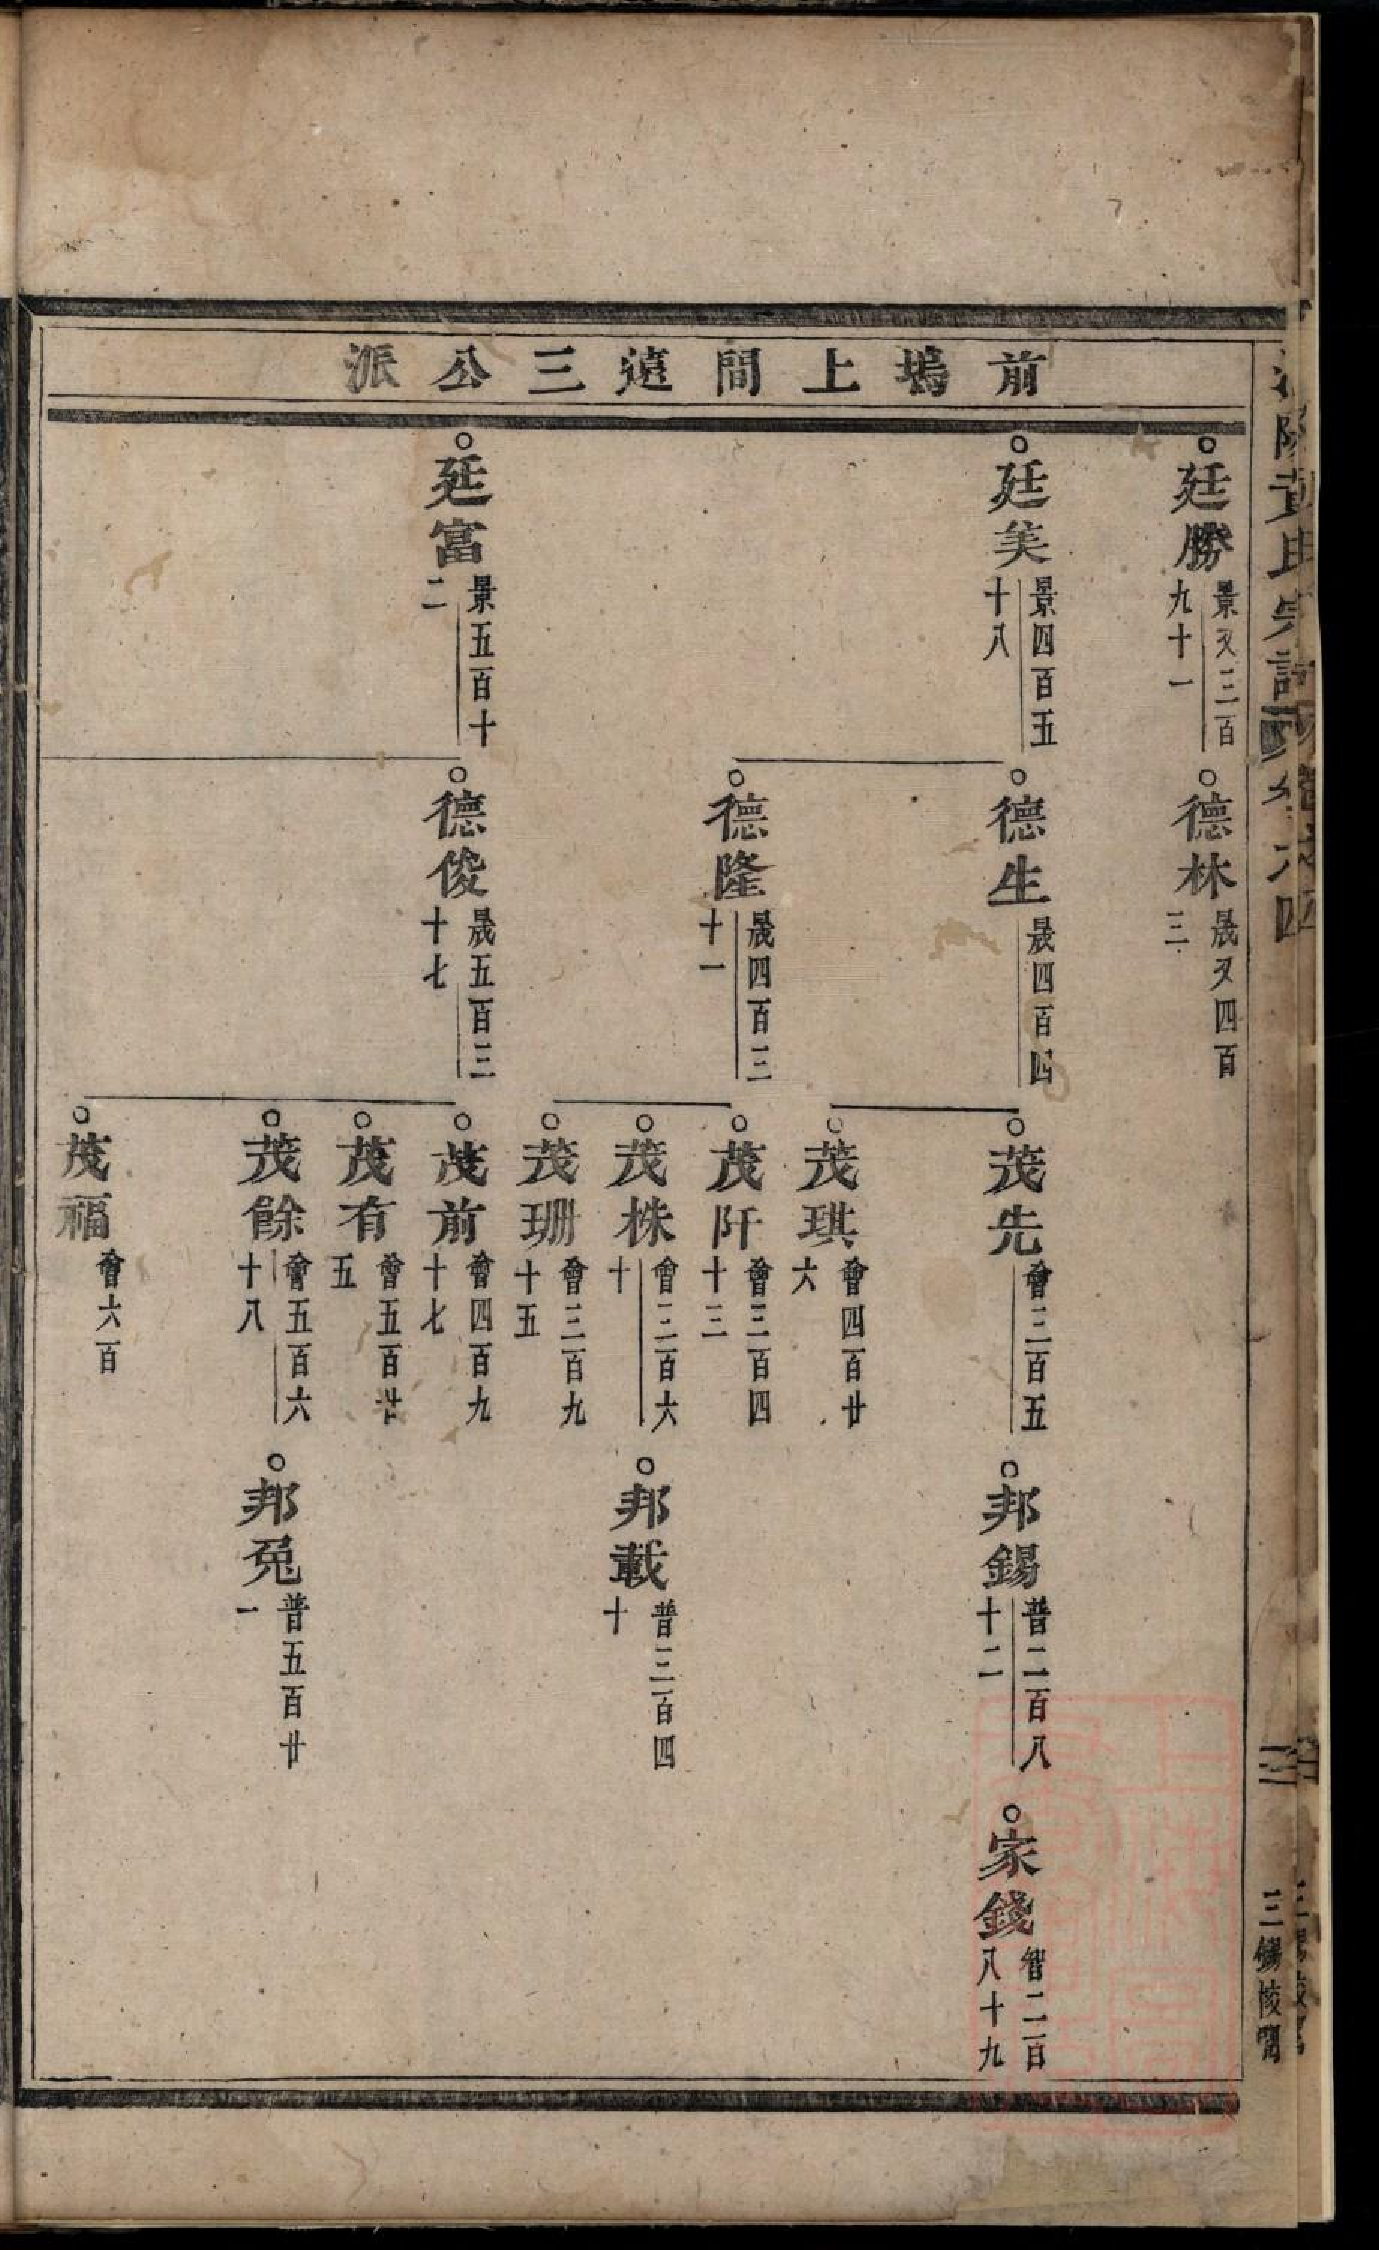 前塢上間遠三公派
廷勝 景又三百九十一
德林 晟又四百三
廷美 景四百五十八
德生 晟四百四
茂先 會三百五
邦錫 普二百八十二
家錢 智二百八十九
茂琪 會四百廿六
德隆 晟四百三十一
茂阡 會三百四十三
茂株 會三百六十
邦載 普三百四十
茂珊 會三百九十五
廷富 景五百十二
德俊 晟五百三十七
茂前 會四百九十七
茂有 會五百卄五
茂餘 會五百六十八
邦兔 普五百廿一
茂福 會六百